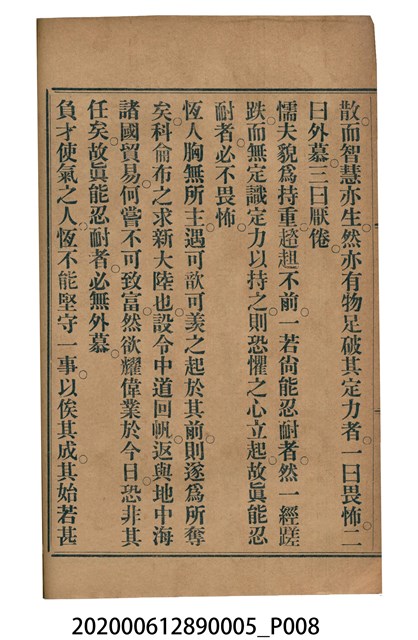 散而智慧亦生然亦有物足破其定力者一曰畏怖二
曰外慕三曰厭倦
懦夫貌爲持重趑趄不前一若尙能忍耐者然一經蹉
跌而無定識定力以持之則恐懼之心立起故眞能忍
耐者必不畏怖
恆人胸無所主遇可歆可羡之起於其前則遂爲所奪
矣科侖布之求新大陸也設令中道回帆返與地中海
諸國貿易何嘗不可致富然欲耀偉業於今日恐非其
任矣故眞能忍耐者必無外慕
負才使氣之人恆不能堅守一事以俟其成其始若甚
202000612890005_P008